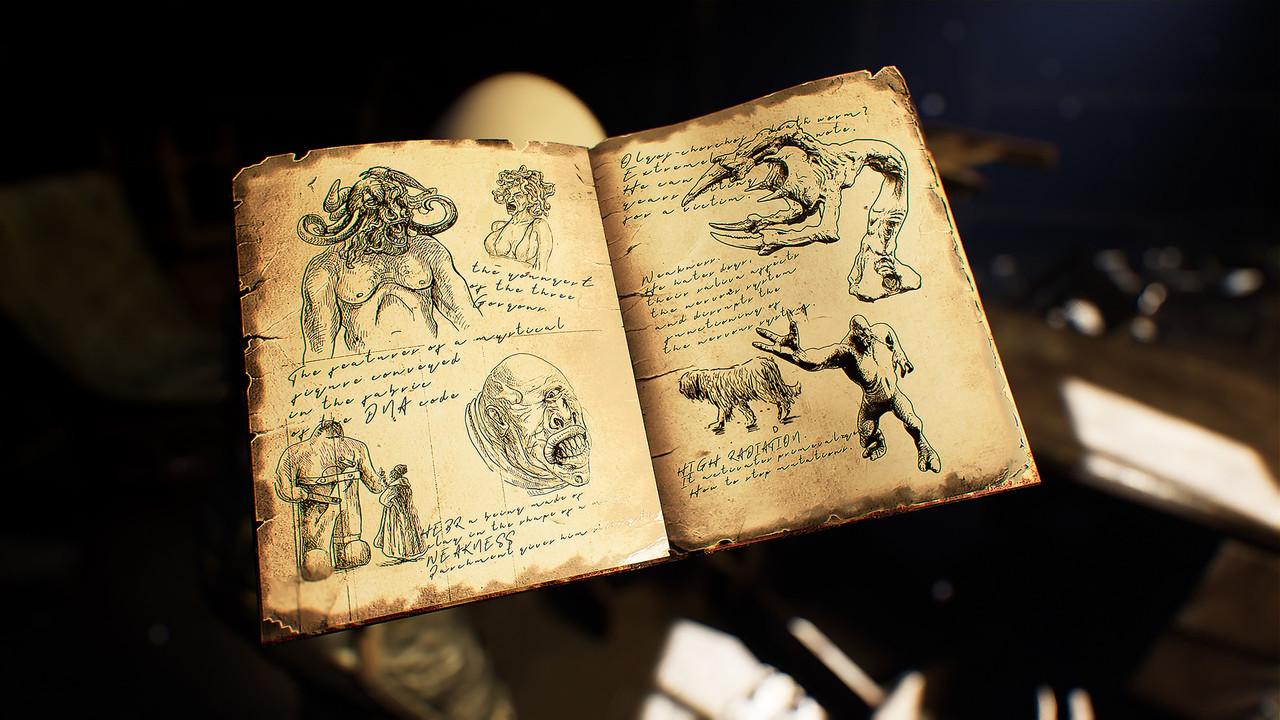 the youngest
of the three
Gorgons
The features of a mystical
figure conveyed
in the fabric
of the DNA code
a being made of
clay in the shape of a
WEAKNESS
Parchment gives him
Olgoi-chorchoi death worm?
note.
He can
years
for a victim
Weakness:
No water drop.
their saliva affects
the nervous system
and disrupts the
functioning of
the nervous
HIGH RADIATION.
It activates primeval
How to stop mutations.